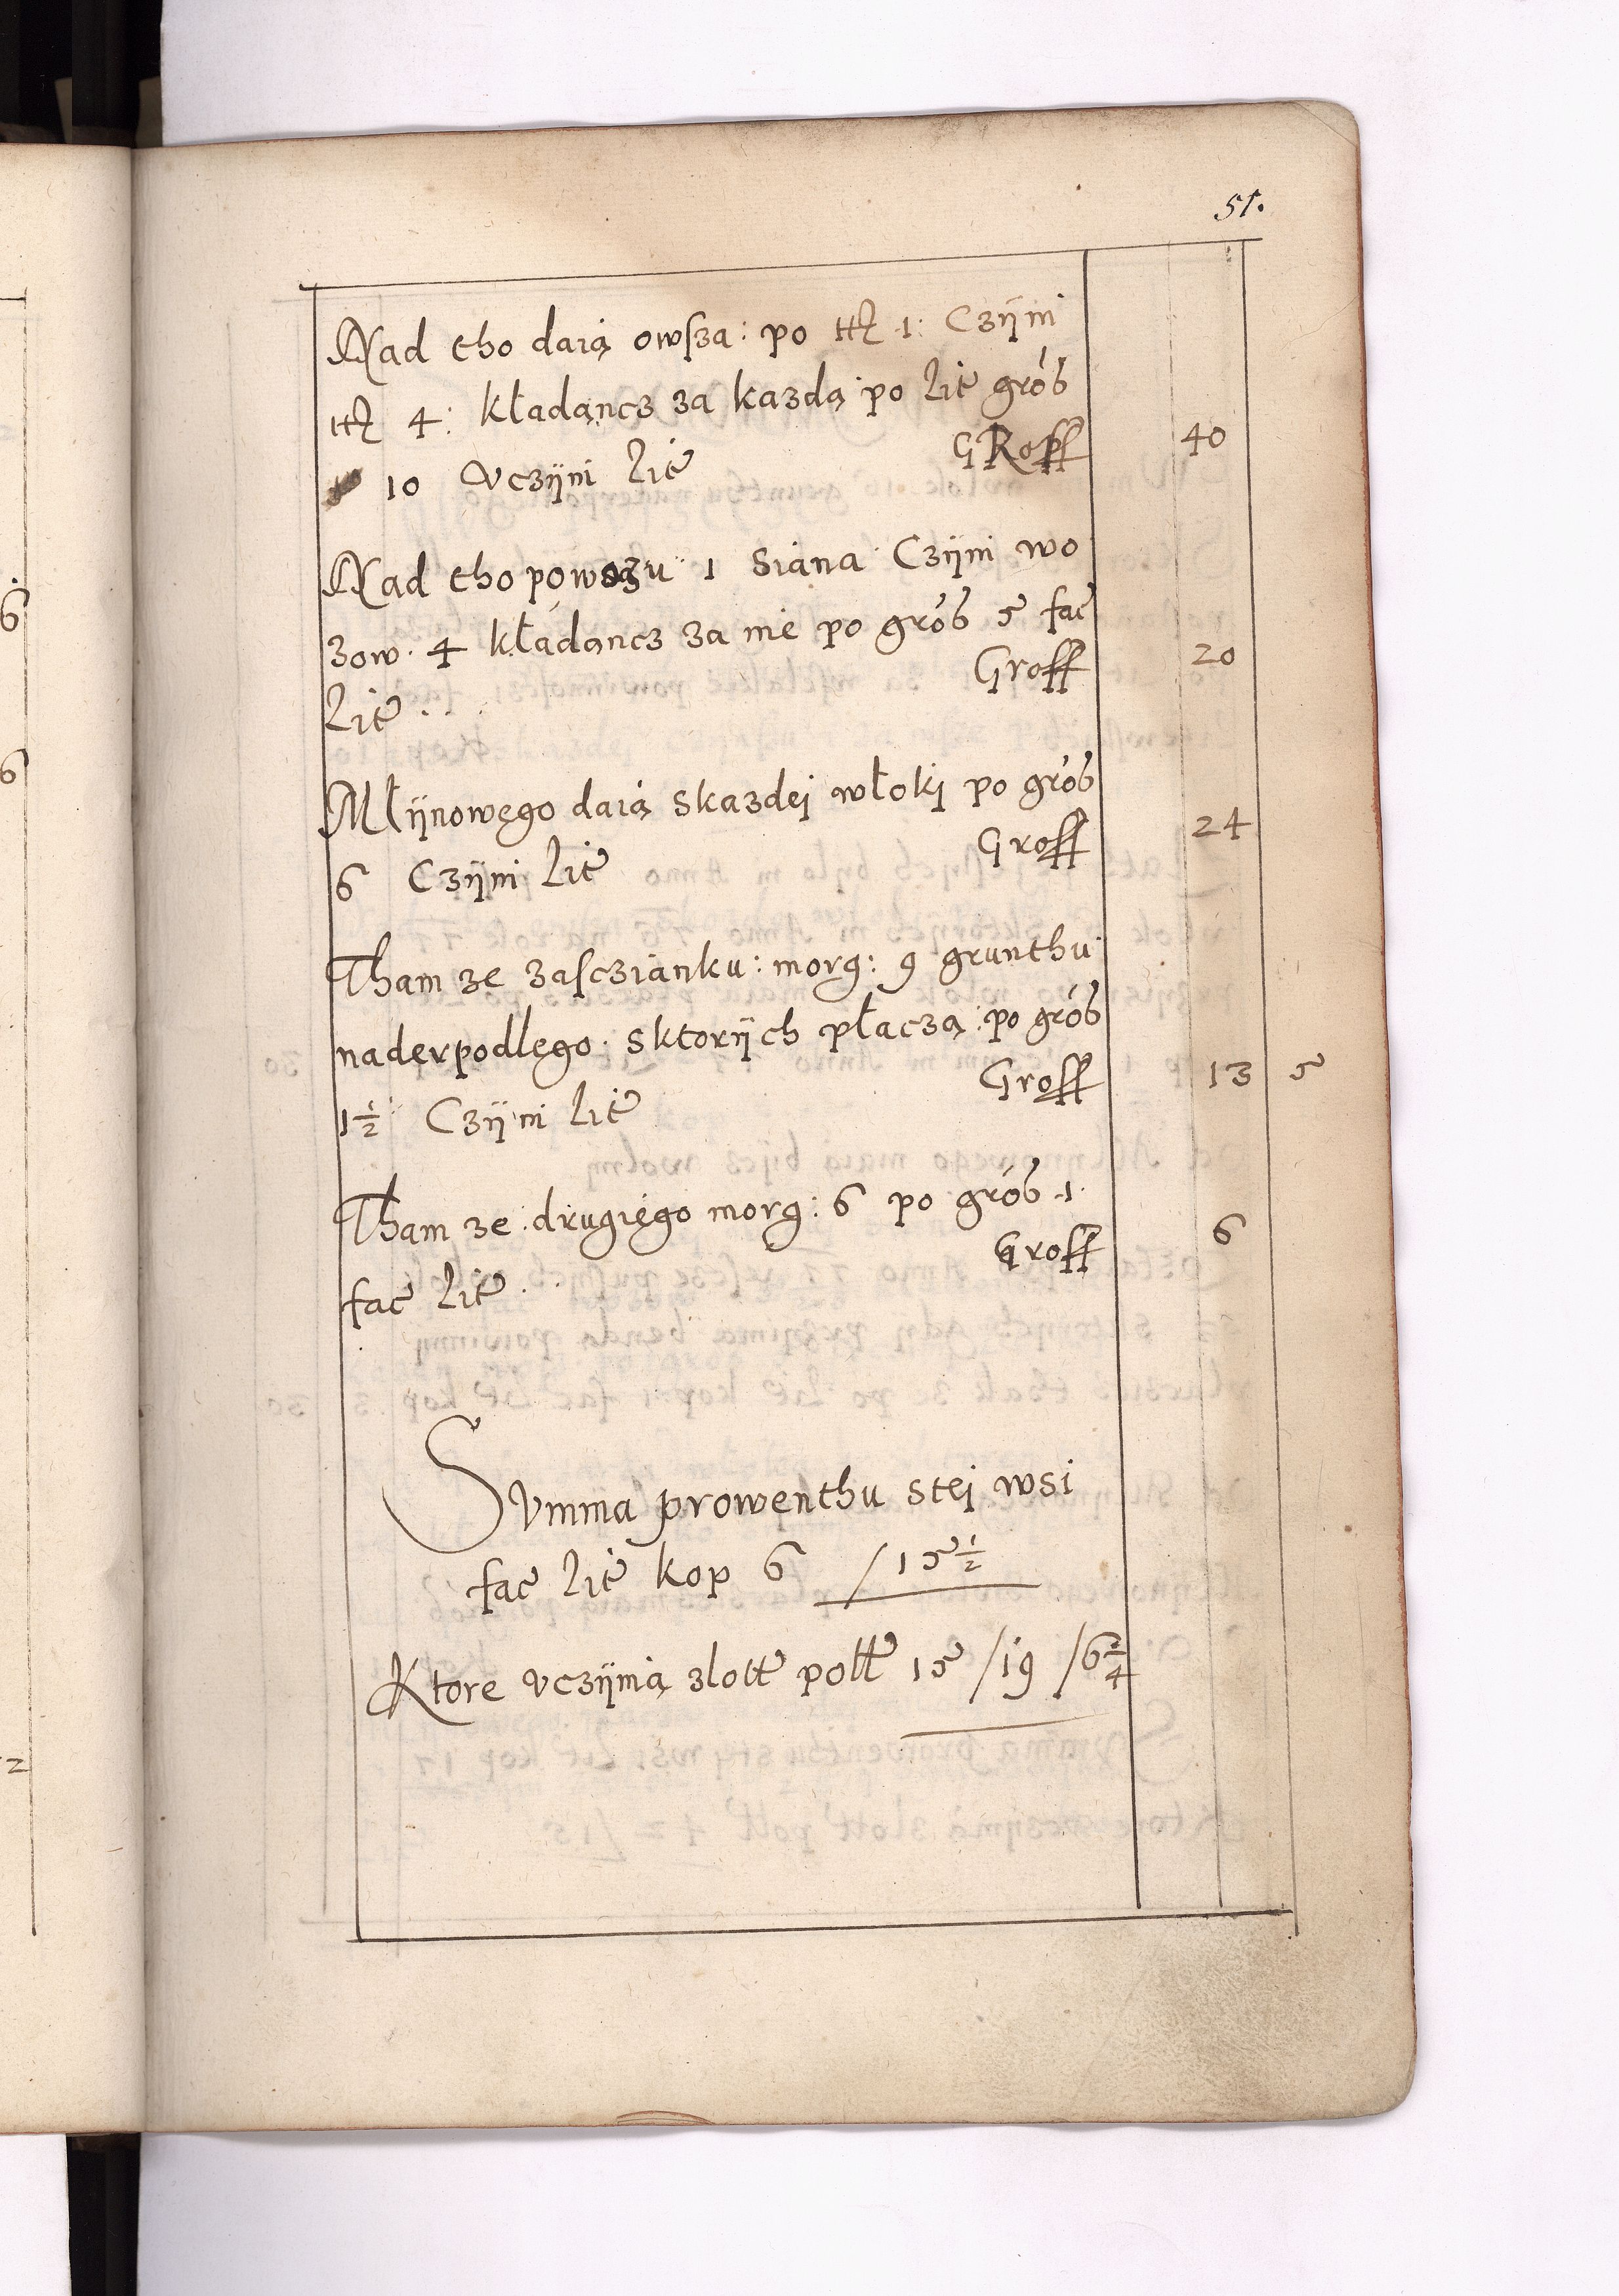 51.
Nad tho daią owsza: po ttz 1: Czÿni
ttz 4: kładąncz za kazdą po Lit grob
10 Vczÿni Lit GRoff 40
Nad tho powozu 1 Siana Czÿni wo
zow. 4 kładąncz za nie po grob 5 fac
Lit . . Groff 20
Młÿnowęgo daią skazdej włokj po grob
6 Czÿni Lit Groff 24
Tham ze zasczianku: morg: 9 grunthu
naderpodlęgo. Sktorÿch płaczą: po grob
1 1/2 Czÿni Lit Groff 13 5
Tham ze: drugięgo morg: 6 po grob .1.
fac Lit . . Groff 6
Svmma prowenthu stej wsi
fac Lit kop 6 / 15 1/2
Ktore vczÿnią zlott poll 15 / 19 / 6 2/4